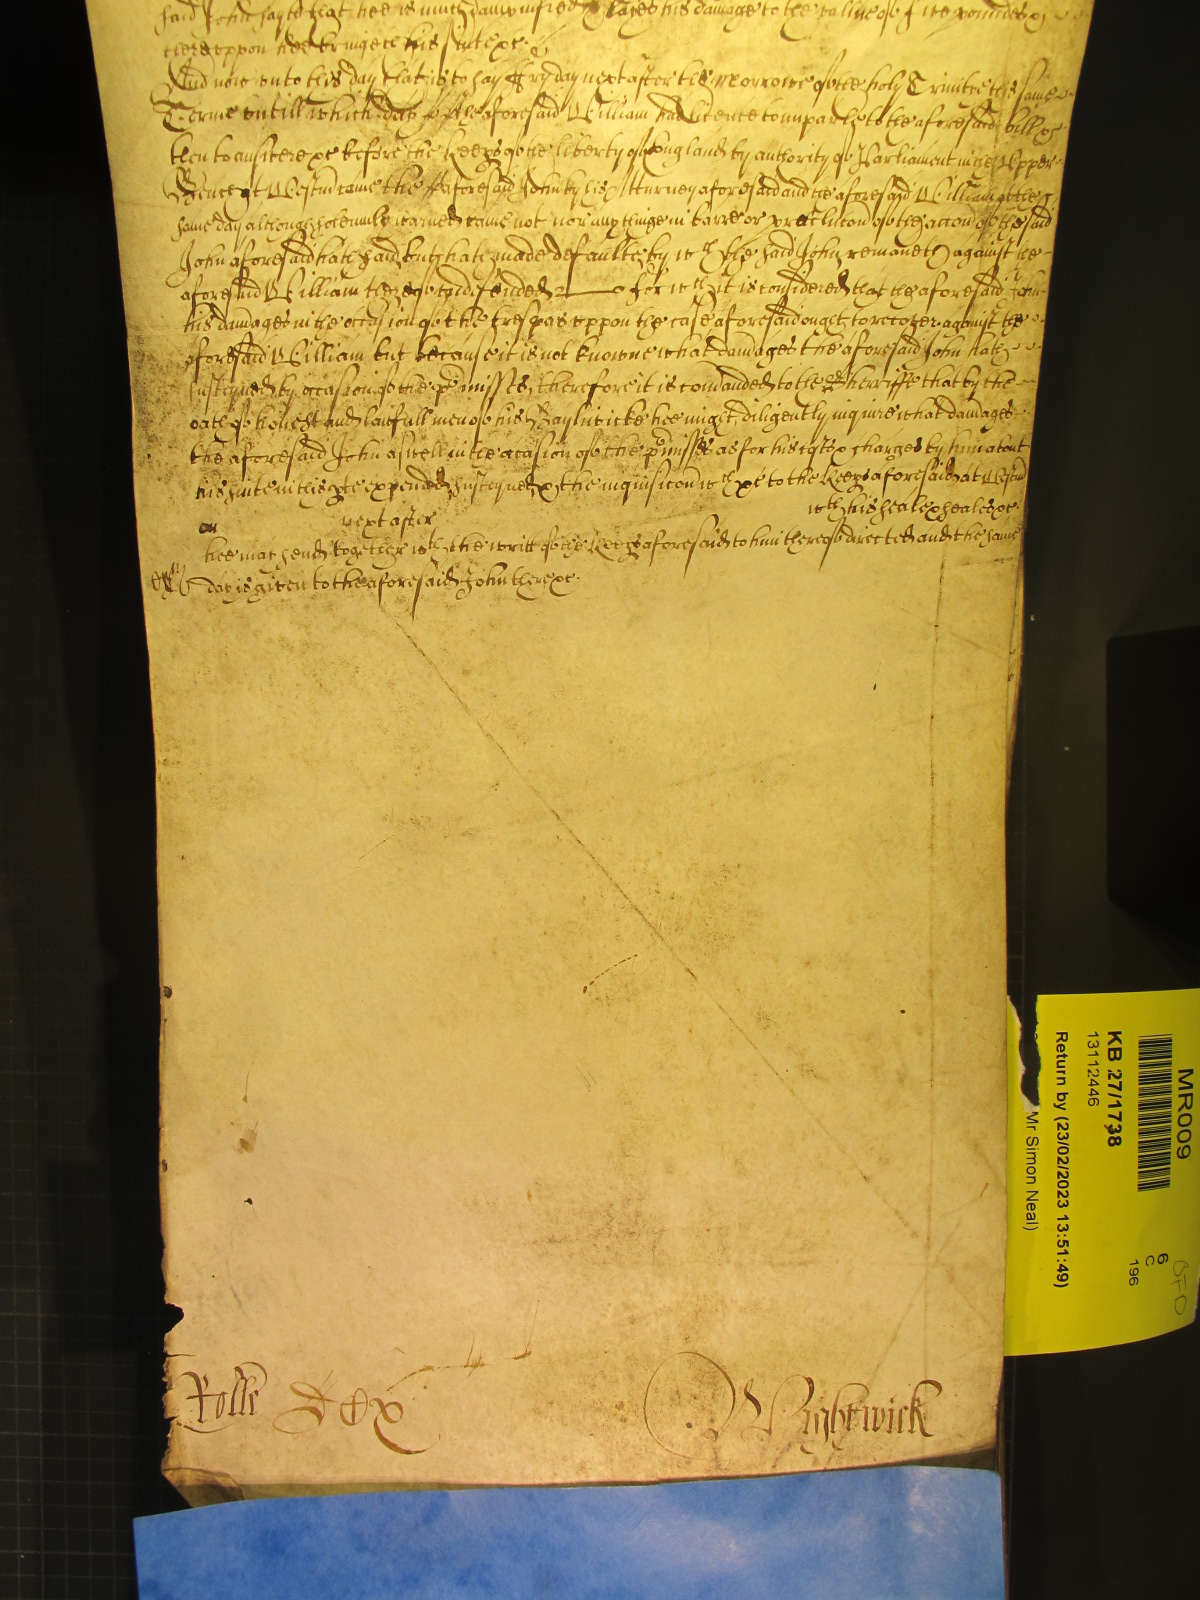 said John saith that hee is much dampnified & hath his damage to the value of five pounds &
thereuppon hee bringeth his suite &c
And now unto this day that is to say Fryday next after the Morrowe of the holy Trinitie this same
Terme untill which day the aforesaid William had licence to imparle to the aforesaid bill &c
then to answere &c before the Keeps of the liberty of England by authority of Parliament in the Upper
Bence at Westm came the aforesaid John by his Atturney aforesaid and the aforesaid William at the
same day although solemnly warned came not nor any thinge in barre or preclucon of the accon of the said
John aforesaid hath said but hath made defaulte by wch the said John remaneth against the
aforesaid William thereof undefended for wch it is considered that the aforesaid John
his damages in the occasion of the trespas uppon the case aforesaid ought to recover against the
aforesaid William but because it is not knowne what damages the aforesaid John hath
susteyned by occasion of the pmisses therefore it is comanded to the Sherriffe that by the
oath of honest and lawfull men of his Baylwicke hee might diligently inquire what damages
the aforesaid John aswell in the ocasion of the pmisses as for his costs & charges by him about
his suite in this pte expended susteyned & the inquisicon wch &c to the Keeps aforesaid at Westm
on next after wth his seale & seales &c
hee may send together wth the writt of the Keeps aforesaid to him thereof directed and the same
day is given to the aforesaid John there &c
Rolle DCX Wightwick
MR009
KB 27/1738
13112446
Return by (23/02/2023 13:51:49)
Mr Simon Neal)
6
C
196